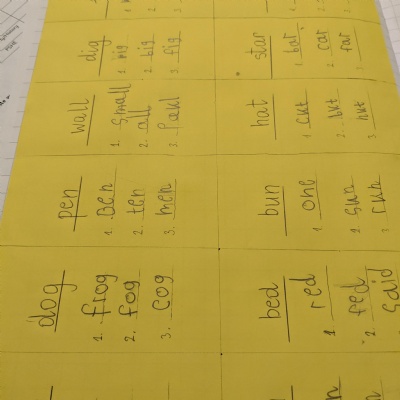 dig
1.
2. big
3. fig
star
1. bar
2. car
far
wall
1. small
2. all
3. Paul
hat
1. cut
2. but
3.
pen
1. Ben
2. ten
3. men
bun
1. one
2. sun
3. run
dog
1. frog
2. fog
3. cog
bed
1. red
2. fed
said